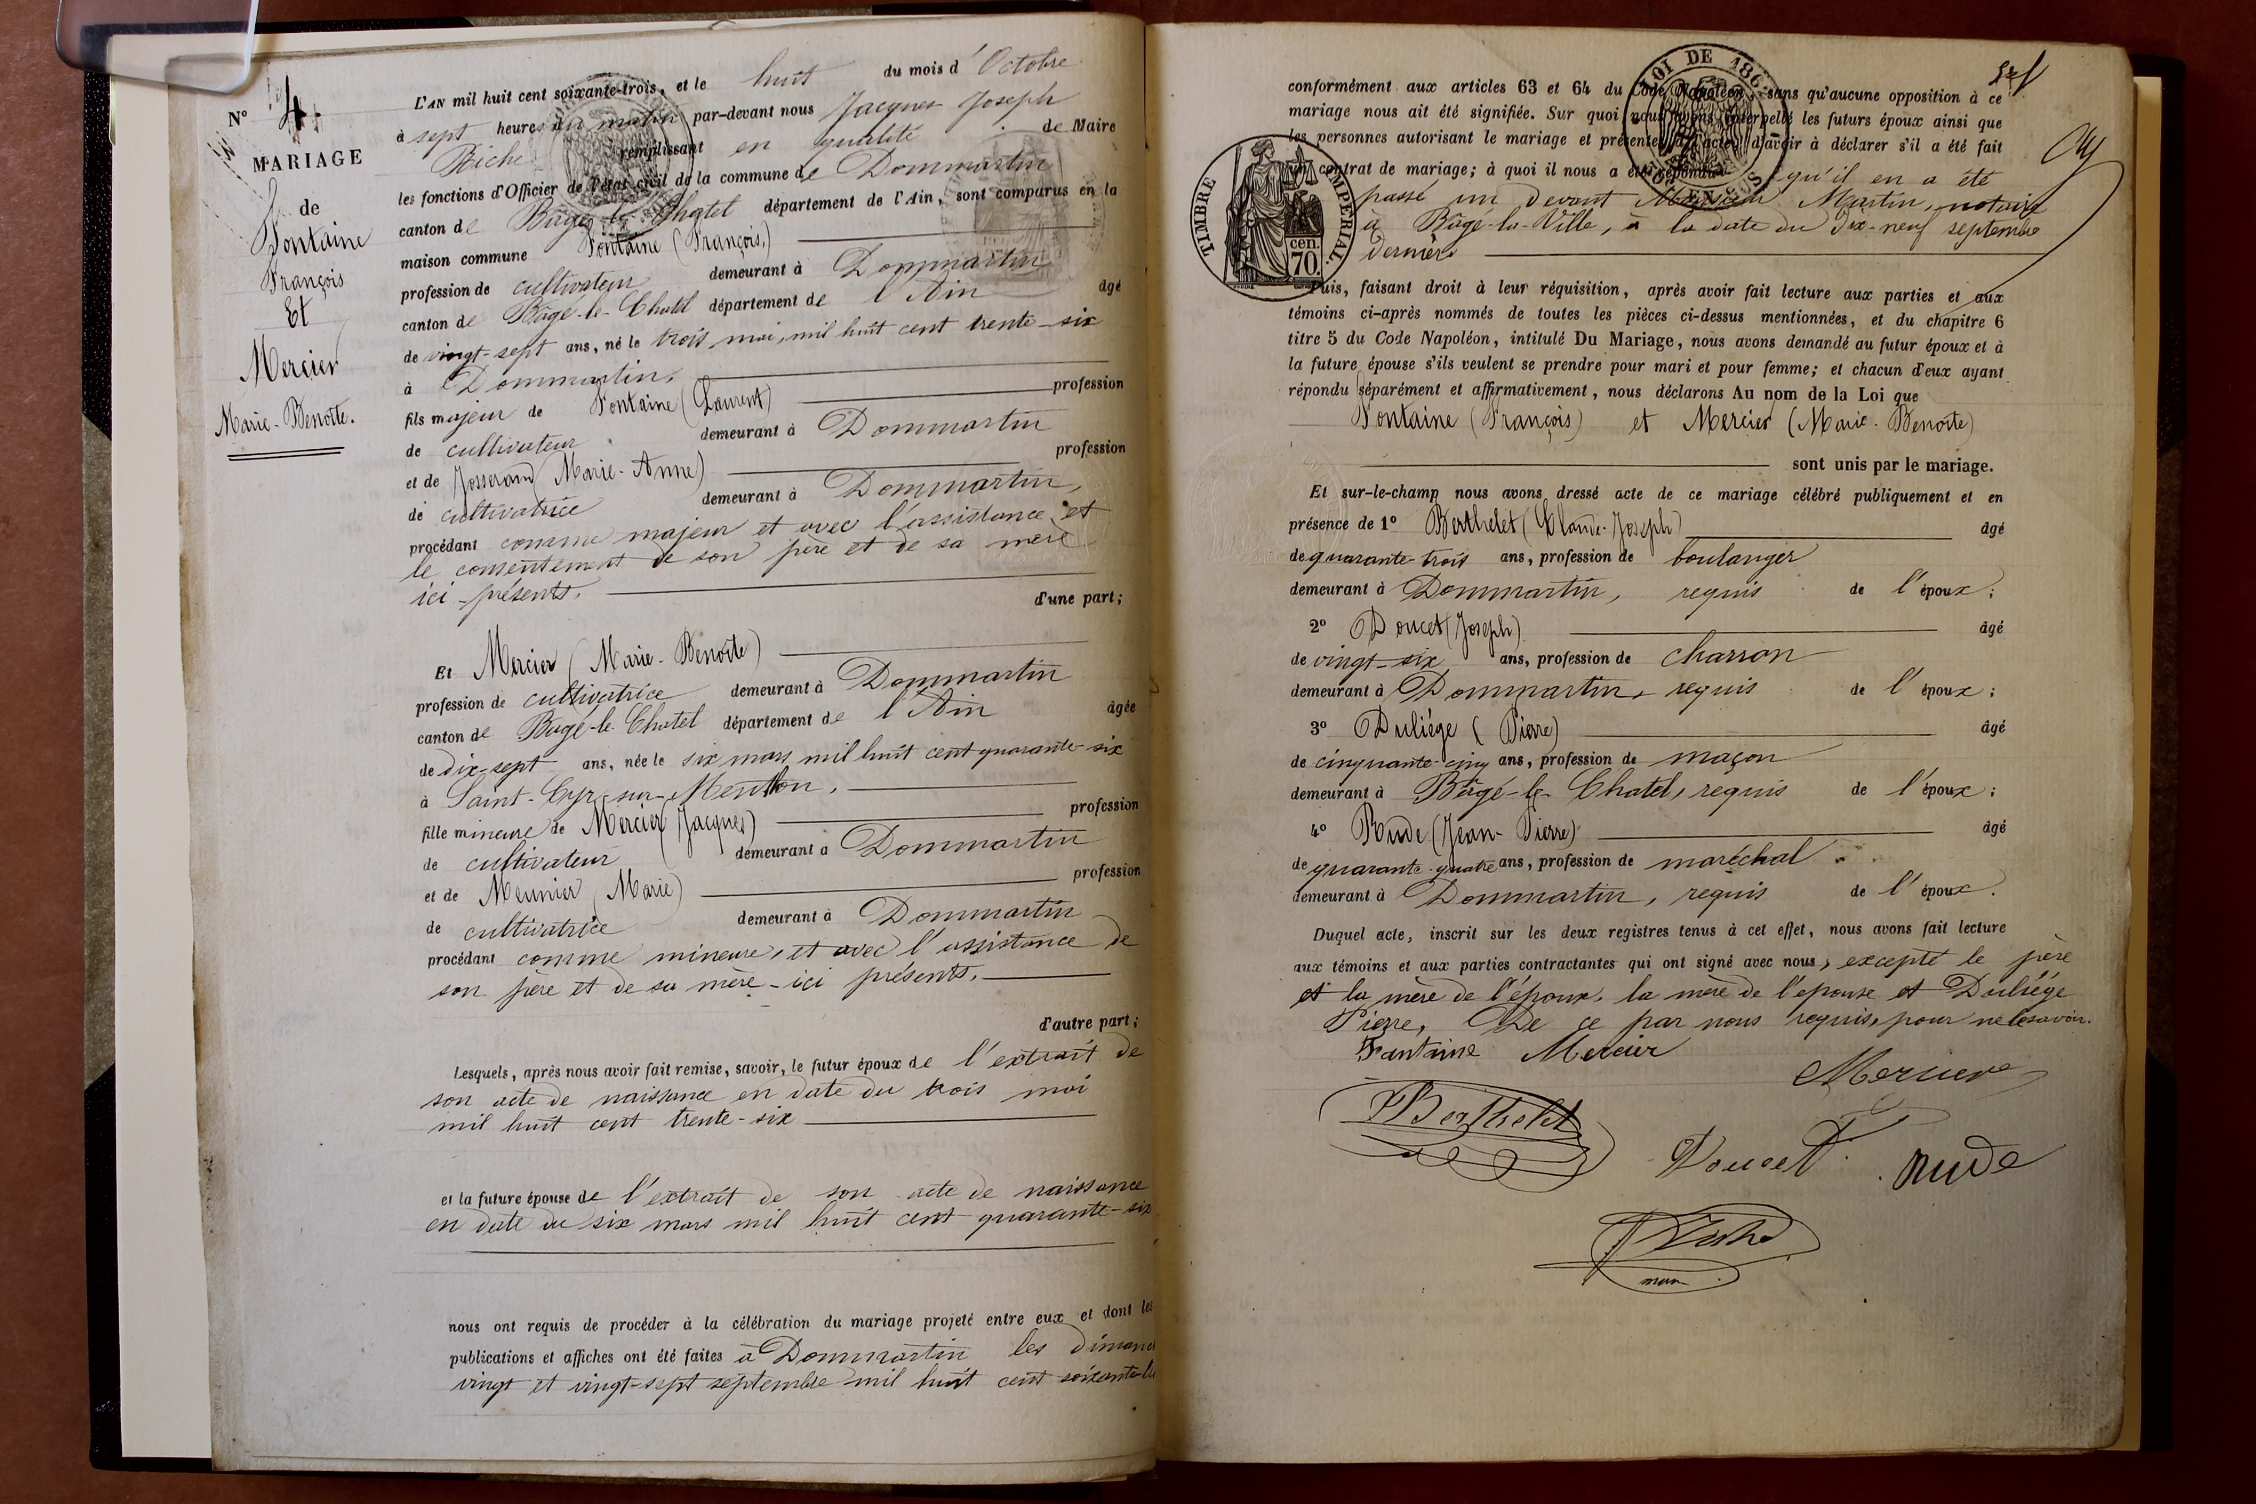 N° 4
MARIAGE
de
Fontaine
François
Et
Mercier
Marie-Benoîte.
L'AN mil huit cent soixante-trois, et le huit du mois d'Octobre
à sept heures du matin par-devant nous Jacques Joseph
Riche remplissant en qualité de Maire
les fonctions d'Officier de l'état civil de la commune de Dommartin
canton de Bâgé-le-Chatel département de l'Ain, sont comparus en la
maison commune Fontaine (François)
profession de cultivateur demeurant à Dommartin
canton de Bâgé-le-Chatel département de l'Ain âgé
de vingt-sept ans, né le trois mai, mil huit cent trente-six
à Dommartin,
fils majeur de Fontaine (Laurent) profession
de cultivateur demeurant à Dommartin
et de Josserand Marie-Anne) profession
de cultivatrice demeurant à Dommartin,
procédant comme majeur et avec l'assistance et
le consentement de son père et de sa mère
ici présents. d'une part;
Et Mercier (Marie-Benoîte)
profession de cultivatrice demeurant à Dommartin
canton de Bâgé-le-Chatel département de l'Ain âgée
de dix-sept ans, née le six mars mil huit cent quarante-six
à Saint-Cyr-sur-Menthon,
fille mineure de Mercier (Jacques) profession
de cultivateur demeurant à Dommartin
et de Meunier (Marie) profession
de cultivatrice demeurant à Dommartin
procédant comme mineure, et avec l'assistance de
son père et de sa mère ici présents.
d'autre part;
Lesquels, après nous avoir fait remise, savoir, le futur époux de l'extrait de
son acte de naissance en date du trois mai
mil huit cent trente-six
et la future épouse de l'extrait de son acte de naissance
en date du six mars mil huit cent quarante-six
nous ont requis de procéder à la célébration du mariage projeté entre eux et dont les
publications et affiches ont été faites à Dommartin les dimanc
vingt et vingt-sept septembre mil huit cent soixante-t
LOI DE 186
conformément aux articles 63 et 64 du Code Napoléon, sans qu'aucune opposition à ce
mariage nous ait été signifiée. Sur quoi nous avons interpellé les futurs époux ainsi que
les personnes autorisant le mariage et présentes à l'acte, d'avoir à déclarer s'il a été fait
un contrat de mariage; à quoi il nous a été répondu qu'il en a été
passé un devant Monsieur Martin, notaire
à Bâgé-la-Ville, à la date du dix-neuf septembre
dernier.
TIMBRE IMPÉRIAL.
cen.
70.
EN SUS
Puis, faisant droit à leur réquisition, après avoir fait lecture aux parties et aux
témoins ci-après nommés de toutes les pièces ci-dessus mentionnées, et du chapitre 6
titre 5 du Code Napoléon, intitulé Du Mariage, nous avons demandé au futur époux et à
la future épouse s'ils veulent se prendre pour mari et pour femme; et chacun d'eux ayant
répondu séparément et affirmativement, nous déclarons Au nom de la Loi que
Fontaine (François) et Mercier (Marie-Benoîte)
sont unis par le mariage.
Et sur-le-champ nous avons dressé acte de ce mariage célébré publiquement et en
présence de 1° Berthelet (Claude-Joseph) âgé
de quarante-trois ans, profession de boulanger
demeurant à Dommartin, requis de l'époux;
2° Doucet (Joseph) âgé
de vingt-six ans, profession de charron
demeurant à Dommartin, requis de l'époux;
3° Duliége (Pierre) âgé
de cinquante-cinq ans, profession de maçon
demeurant à Bâgé-le-Chatel, requis de l'époux;
4° Rude (Jean-Pierre) âgé
de quarante-quatre ans, profession de maréchal
demeurant à Dommartin, requis de l'époux.
Duquel acte, inscrit sur les deux registres tenus à cet effet, nous avons fait lecture
aux témoins et aux parties contractantes qui ont signé avec nous, excepté le père
et la mère de l'époux, la mère de l'épouse et Duliége
Pierre, De ce par nous requis, pour ne le savoir.
Fantaine Mercier
Mercier
Berthelet
Doucet
Rude
Riche
maire